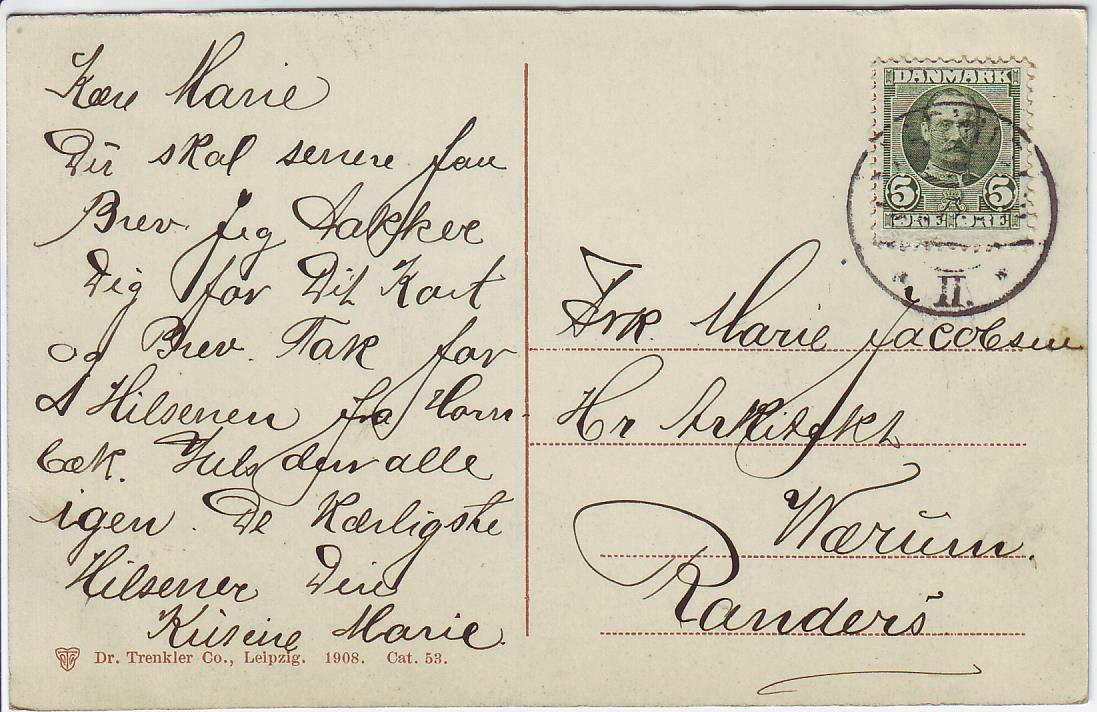 Kære Marie
Du skal senere faa
Brev. Jeg takker
Dig for Dit Kort
og Brev. Tak for
Hilsenen fra Horn-
bæk. Hils dem alle
igen. De Kærligste
Hilsener Din
Kusine Marie.
Dr. Trenkler Co., Leipzig. 1908. Cat. 53.
DANMARK
5 5
ØRE ØRE
II.
Frk. Marie Jacobsen
Hr Arkitekt
Wærum.
Randers.